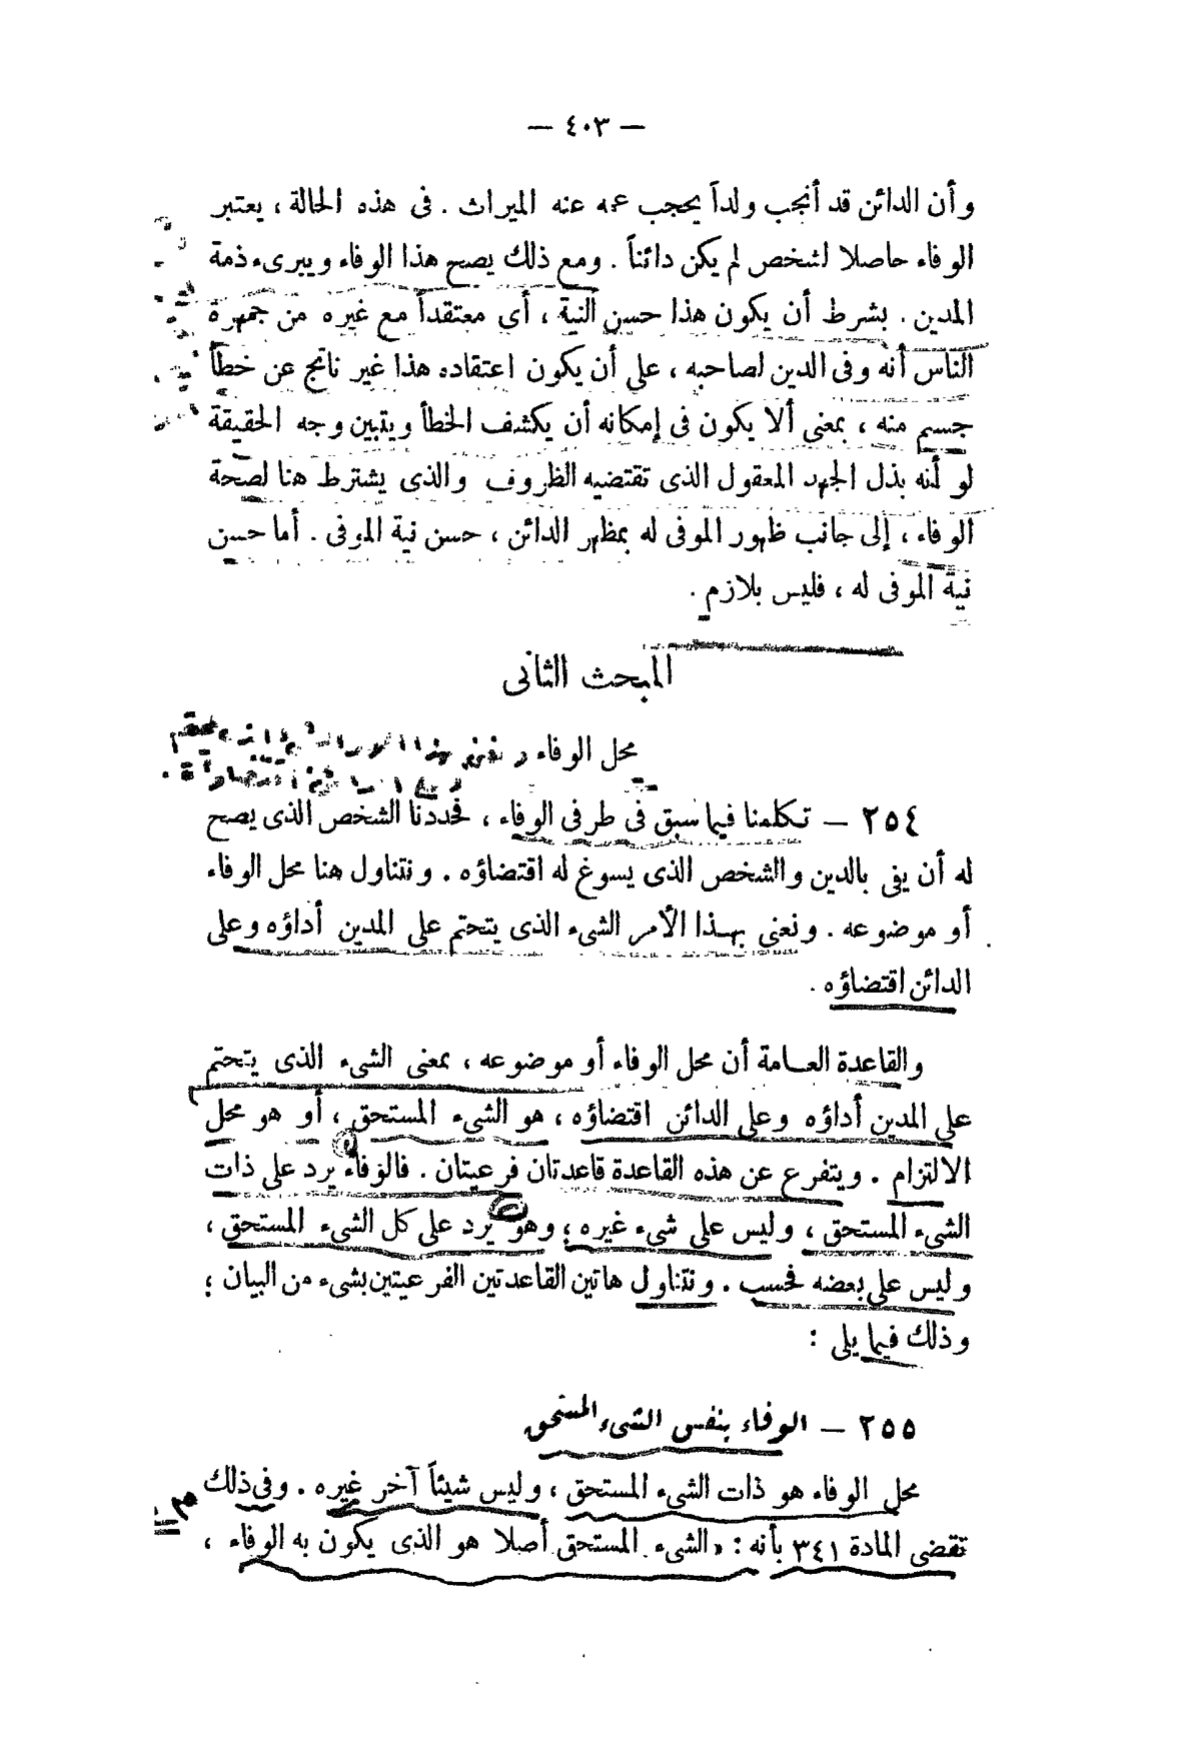 — ٤٠٣ —
وأن الدائن قد أنجب ولداً يحجب عمه عنه الميراث . فى هذه الحالة ، يعتبر
الوفاء حاصلا لشخص لم يكن دائناً . ومع ذلك يصح هذا الوفاء ويبرىء ذمة
المدين . بشرط أن يكون هذا حسن النية ، أى معتقداً مع غيره من جمهرة
الناس أنه وفى الدين لصاحبه ، على أن يكون اعتقاده هذا غير ناتج عن خطأ
جسيم منه ، بمعنى ألا يكون فى إمكانه أن يكشف الخطأ ويتبين وجه الحقيقة
لو أنه بذل الجهد المعقول الذى تقتضيه الظروف والذى يشترط هنا لصحة
الوفاء ، إلى جانب ظهور الموفى له بمظهر الدائن ، حسن نية الموفى . أما حسن
نية الموفى له ، فليس بلازم .
المبحث الثانى
محل الوفاء
٢٥٤ — تكلمنا فيما سبق فى طرفى الوفاء ، فحددنا الشخص الذى يصح
له أن يفى بالدين والشخص الذى يسوغ له اقتضاؤه . ونتناول هنا محل الوفاء
أو موضوعه . ونعنى بهذا الأمر الشىء الذى يتحتم على المدين أداؤه وعلى
الدائن اقتضاؤه .
والقاعدة العامة أن محل الوفاء أو موضوعه ، بمعنى الشىء الذى يتحتم
على المدين أداؤه وعلى الدائن اقتضاؤه ، هو الشىء المستحق ، أو هو محل
الالتزام . ويتفرع عن هذه القاعدة قاعدتان فرعيتان . فالوفاء يرد على ذات
الشىء المستحق ، وليس على شىء غيره ؛ وهو يرد على كل الشىء المستحق ،
وليس على بعضه فحسب . ونتناول هاتين القاعدتين الفرعيتين بشىء من البيان ؛
وذلك فيما يلى :
٢٥٥ — الوفاء بنفس الشىء المستحق
محل الوفاء هو ذات الشىء المستحق ، وليس شيئاً آخر غيره . وفى ذلك
تقضى المادة ٣٤١ بأنه : « الشىء المستحق أصلا هو الذى يكون به الوفاء ،